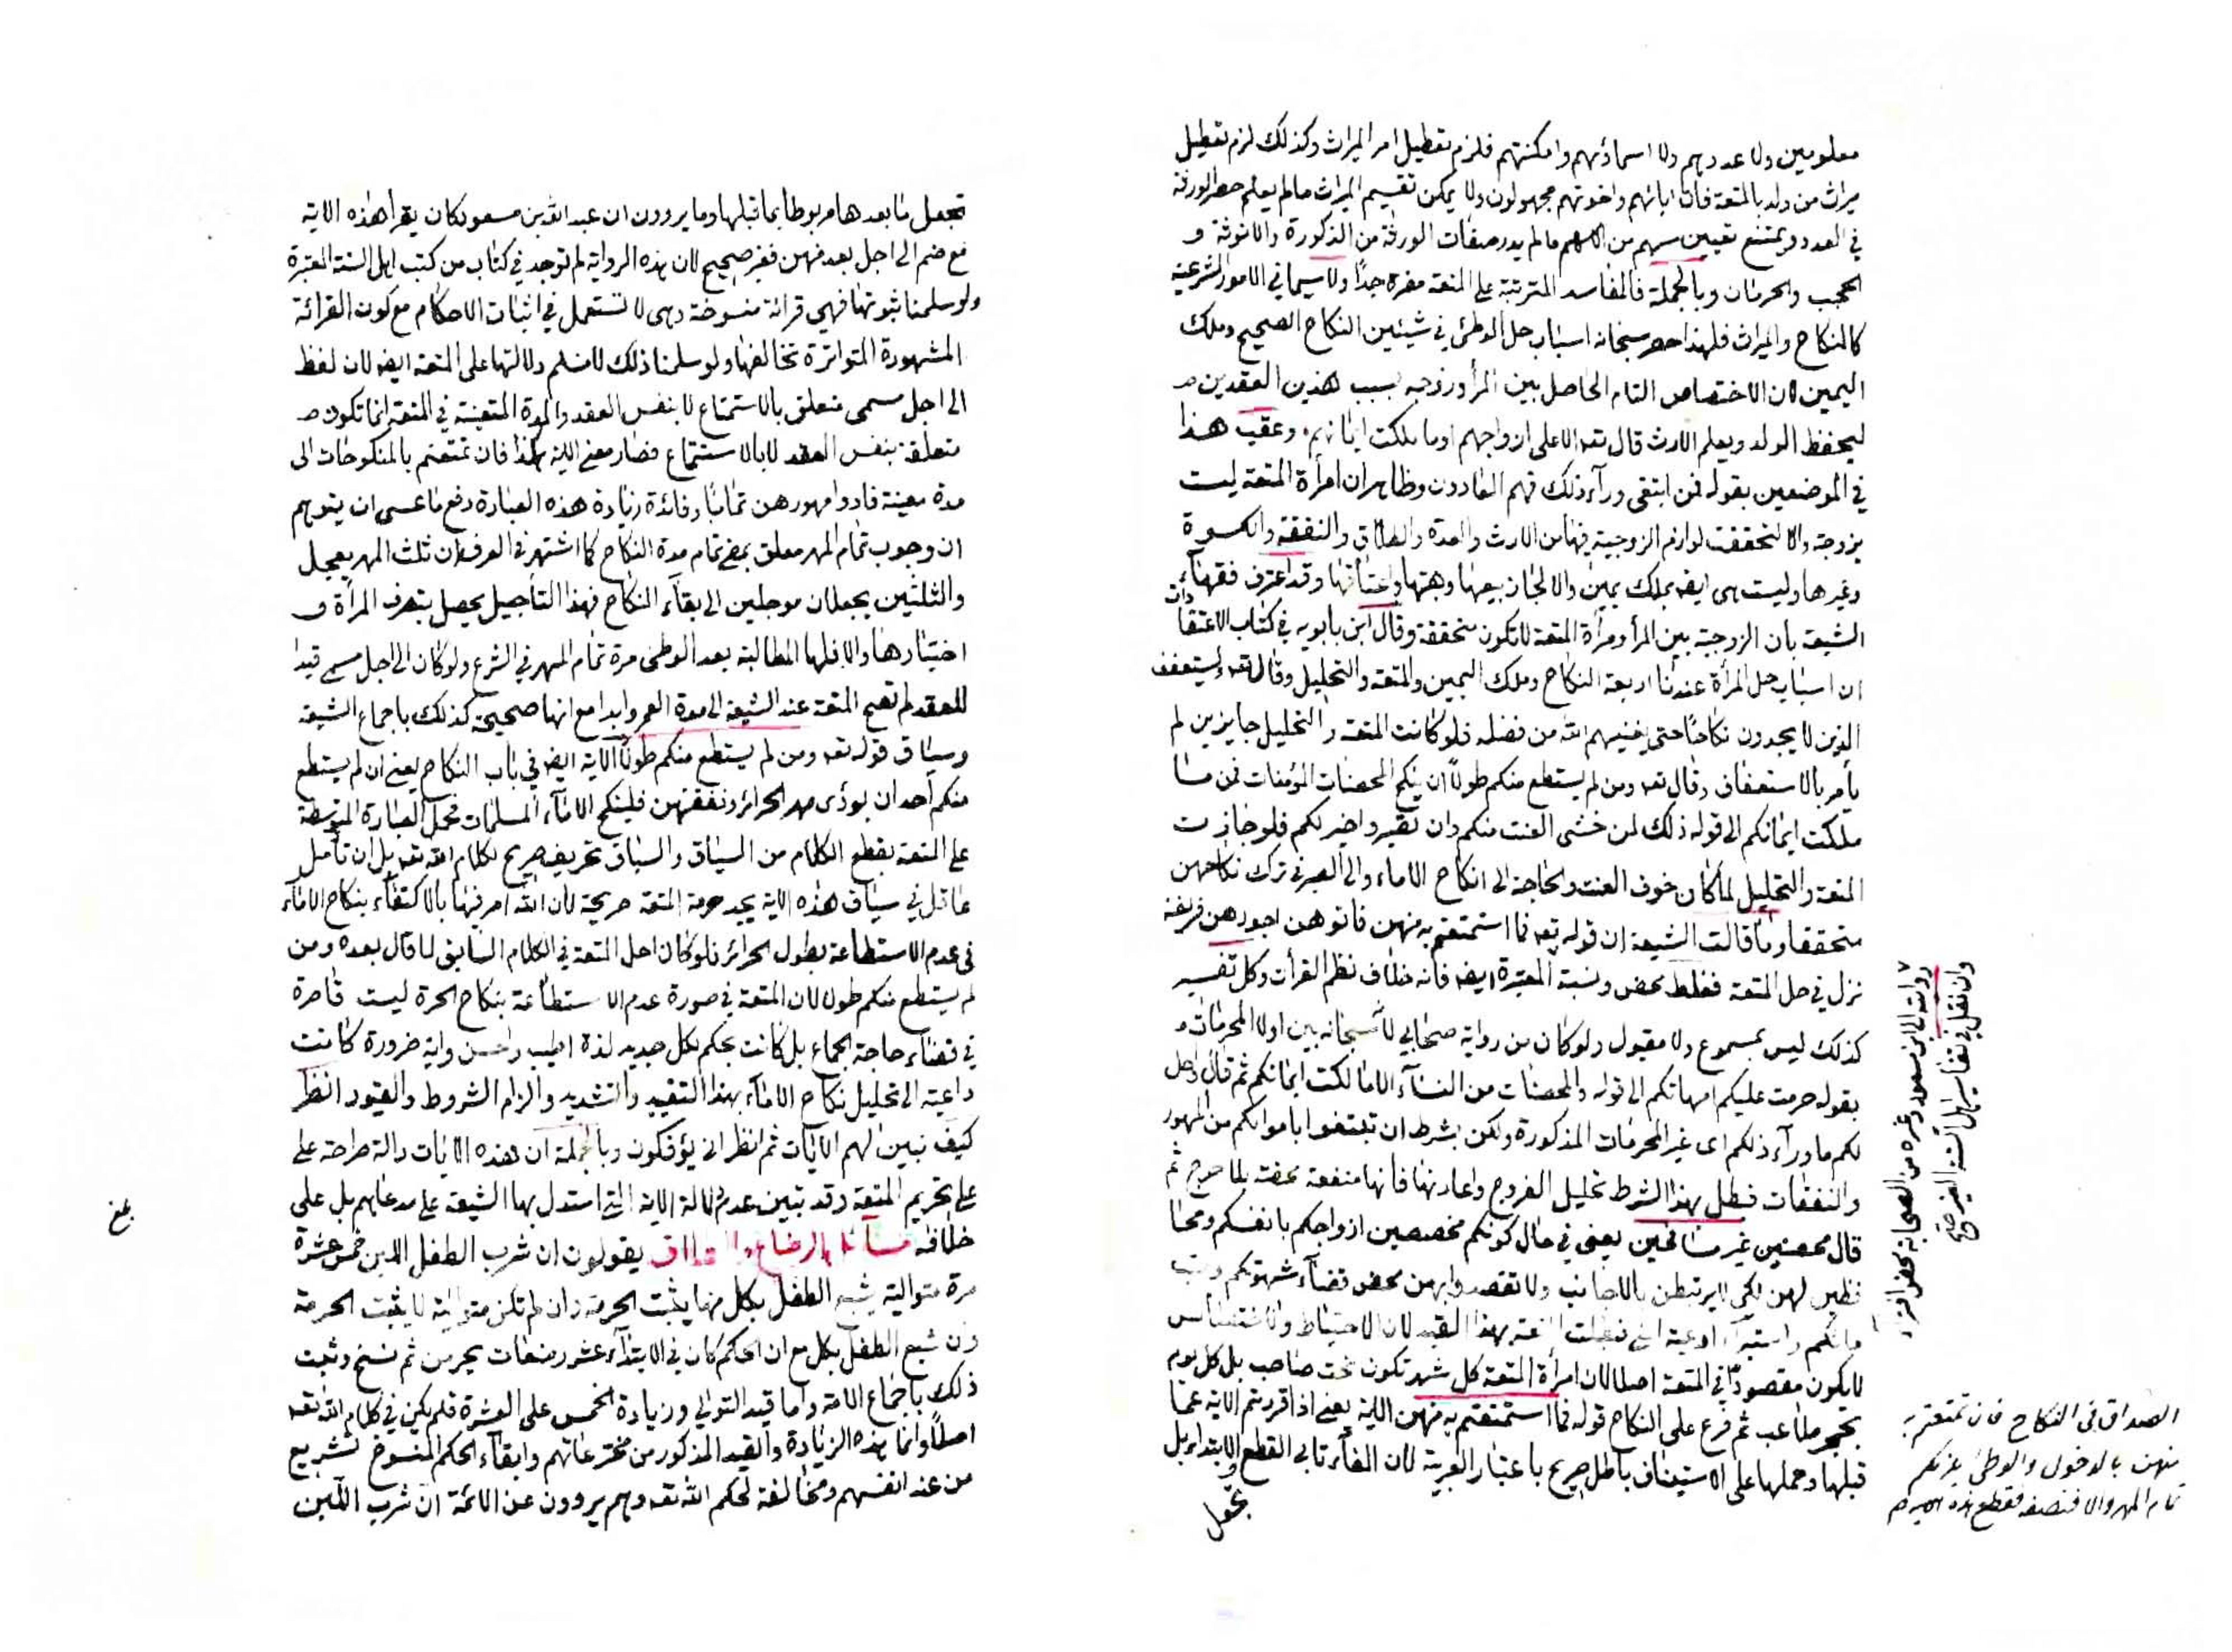 معلومين ولا عددهم ولا اسماؤهم وامكنتهم فلزم تعطيل امر الميراث وكذلك لزم تعطيل
ميراث من ولد بالمتعة فان ابائهم واخوتهم مجهولون ولا يمكن تقسيم الميراث ما لم يعلم حصر الورثة
في العدد ويمتنع تعيين سهم من الاسهم ما لم يدر صفات الورثة من الذكورة والانوثة و
الحجب والحرمان وبالجملة فالمفاسد المترتبة على المتعة مضرة جدًا ولا سيما في الامور الشرعية
كالنكاح والميراث فلهذا حصر سبحانه اسباب حل الوطئ في شيئين النكاح الصحيح وملك
اليمين لان الاختصاص التام الحاصل بين المرأ وزوجه بسبب هذين العقدين
ليحفظ الولد ويعلم الارث قال تعه الا على ازواجهم او ما ملكت ايمانهم وعقب هذا
في الموضعين بقوله فمن ابتغى ورآء ذلك فهم العادون وظاهر ان امرأة المتعة ليست
بزوجة والا لتحققت لوازم الزوجية فيها من الارث والعدة والطلاق والنفقة والكسوة
وغيرها وليست هى ايضه بملك يمين والا لجاز بيعها وهبتها واعتاقها وقد اعترف فقهآء
الشيعة بأن الزوجية بين المرأ ومرأة المتعة لا تكون متحققة وقال ابن بابويه في كتاب الاعتقادات
ان اسباب حل المرأة عندنا اربعة النكاح وملك اليمين والمتعة والتحليل وقال تعه وليستعفف
الذين لا يجدون نكاحًا حتى يغنيهم الله من فضله فلو كانت المتعة والتحليل جايزين لم
يأمر بالاستعفاف وقال تعه ومن لم يستطع منكم طولًا ان ينكح المحصنات المؤمنات فمن ما
ملكت ايمانكم الى قوله ذلك لمن خشى العنت منكم وان تصبروا خير لكم فلو جازت
المتعة والتحليل لما كان خوف العنت والحاجة الى انكاح الاماء والى الصبر في ترك نكاحهن
متحققا وما قالت الشيعة ان قوله تعه فما استمتعتم به منهن فاتوهن اجورهن فريضة
نزل في حل المتعة فغلط محض ونسبة المعتبرة ايضه فانه خلاف نظم القرأن وكل تفسير
كذلك ليس بمسموع ولا مقبول ولو كان من رواية صحابي لانه سبحانه بين اولا المحرمات
بقوله حرمت عليكم امهاتكم الى قوله والمحصنات من النسآء الا ما ملكت ايمانكم ثم قال واحل
لكم ما ورآء ذلكم اى غير المحرمات المذكورة ولكن بشرط ان تبتغوا باموالكم من المهور
والنفقات فبطل بهذا الشرط تحليل الفروج واعارتها فانها منفعة محضة بلا حرج ثم
قال محصنين غير مسافحين يعني في حال كونكم مخصصين ازواجكم بانفسكم ومحا
فظين لهن لكي لا يرتبطن بالاجانب ولا تقصدوا بهن محض قضآء شهوتكم وصب
مائكم واستبرآء اوعية المنى فبطلت المتعة بهذا القيد لان الاحتياط والاختصاص
لا يكون مقصودًا في المتعة اصلا لان امرأة المتعة كل شهر تكون تحت صاحب بل كل يوم
بحجر ملاعب ثم فرع على النكاح قوله فما استمتعتم به منهن الاية يعني اذا قررتم الاية عما
قبلها وحملها على الاستيناف باطل صريح باعتبار العربية لان الفاء تابى القطع والابتداء بل
تجعل
وان نقل في تفاسير اهل السنة الغير
روايته الى ابن مسعود وغيره من الصحابة محض افترآء
الصداق في النكاح فان تمتعتم به
منهن بالدخول والوطئ يلزمكم
تمام المهر والا فنصفه فقطع هذه الاية
تجعل ما بعدها مربوطا بما قبلها وما يروون ان عبد الله بن مسعود كان يقرأ هذه الاية
مع ضم الى اجل بعد منهن فغير صحيح لان هذه الرواية لم توجد في كتاب من كتب اهل السنة المعتبرة
ولو سلمنا ثبوتها فهي قرائة منسوخة وهى لا تستعمل في اثبات الاحكام مع كون القرائة
المشهورة المتواترة تخالفها ولو سلمنا ذلك لا نسلم دلالتها على المتعة ايضه لان لفظ
الى اجل مسمى متعلق بالاستمتاع لا بنفس العقد والمدة المتعينة في المتعة انما تكون
متعلقة بنفس العقد لا بالاستمتاع فصار معنى الاية هكذا فان تمتعتم بالمنكوحات الى
مدة معينة فادوا مهورهن تماما وفائدة زيادة هذه العبارة دفع ما عسى ان يتوهم
ان وجوب تمام المهر معلق بمضي تمام مدة النكاح كما اشتهر في العرف ان ثلث المهر يعجل
والثلثين يجعلان مؤجلين الى بقآء النكاح فهذا التأجيل يحصل بتصرف المرأة و
اختيارها والا فلها المطالبة بعد الوطئ مرة تمام المهر في الشرع ولو كان الى اجل مسمى قيدا
للعقد لم تصح المتعة عند الشيعة الى مدة العمر وابدا مع انها صحيحة كذلك باجماع الشيعة
وسياق قوله تعه ومن لم يستطع منكم طولًا الاية ايضه في باب النكاح يعني ان لم يستطع
منكم أحد ان يؤدى مهر الحرائر ونفقتهن فلينكح الامآء المسلمات تحمل العبارة المتوسطة
على المتعة بقطع الكلام من السياق والسباق تحريف صريح لكلام الله تعه بل ان تأمل
عاقل في سياق هذه الاية يجد حرمة المتعة صريحة لان الله امر فيها بالاكتفاء بنكاح الامآء
في عدم الاستطاعة بطول الحرائر فلو كان احل المتعة في الكلام السابق لما قال بعده ومن
لم يستطع منكم طولا لان المتعة في صورة عدم الاستطاعة بنكاح الحرة ليست قاصرة
في قضآء حاجة الجماع بل كانت بحكم لكل جديد لذة اطيب واحسن واية ضرورة كانت
داعية الى تحليل نكاح الامآء بهذا التقييد والتشديد والزام الشروط والقيود انظر
كيف نبين لهم الايات ثم انظر انى يؤفكون وبالجملة ان هذه الايات دالة صراحة على
على تحريم المتعة وقد تبين عدم دلالة الاية التي استدل بها الشيعة على مدعاهم بل على
خلافه مسائل الرضاع والطلاق يقولون ان شرب الطفل اللبن خمس عشرة
مرة متوالية يشبع الطفل بكل منها يثبت الحرمة وان لم تكن متوالية لا يثبت الحرمة
وان شبع الطفل بكل مع ان الحكم كان في الابتدآء عشر رضعات يحرمن ثم نسخ وثبت
ذلك باجماع الامة واما قيد التوالي وزيادة الخمس على العشرة فلم يكن في كلام الله تعه
اصلًا وانما هذه الزيادة والقيد المذكور من مخترعاتهم وابقآء الحكم المنسوخ تشريع
من عند انفسهم ومخالفة لحكم الله تعه وهم يروون عن الائمة ان شرب اللبن
بلغ